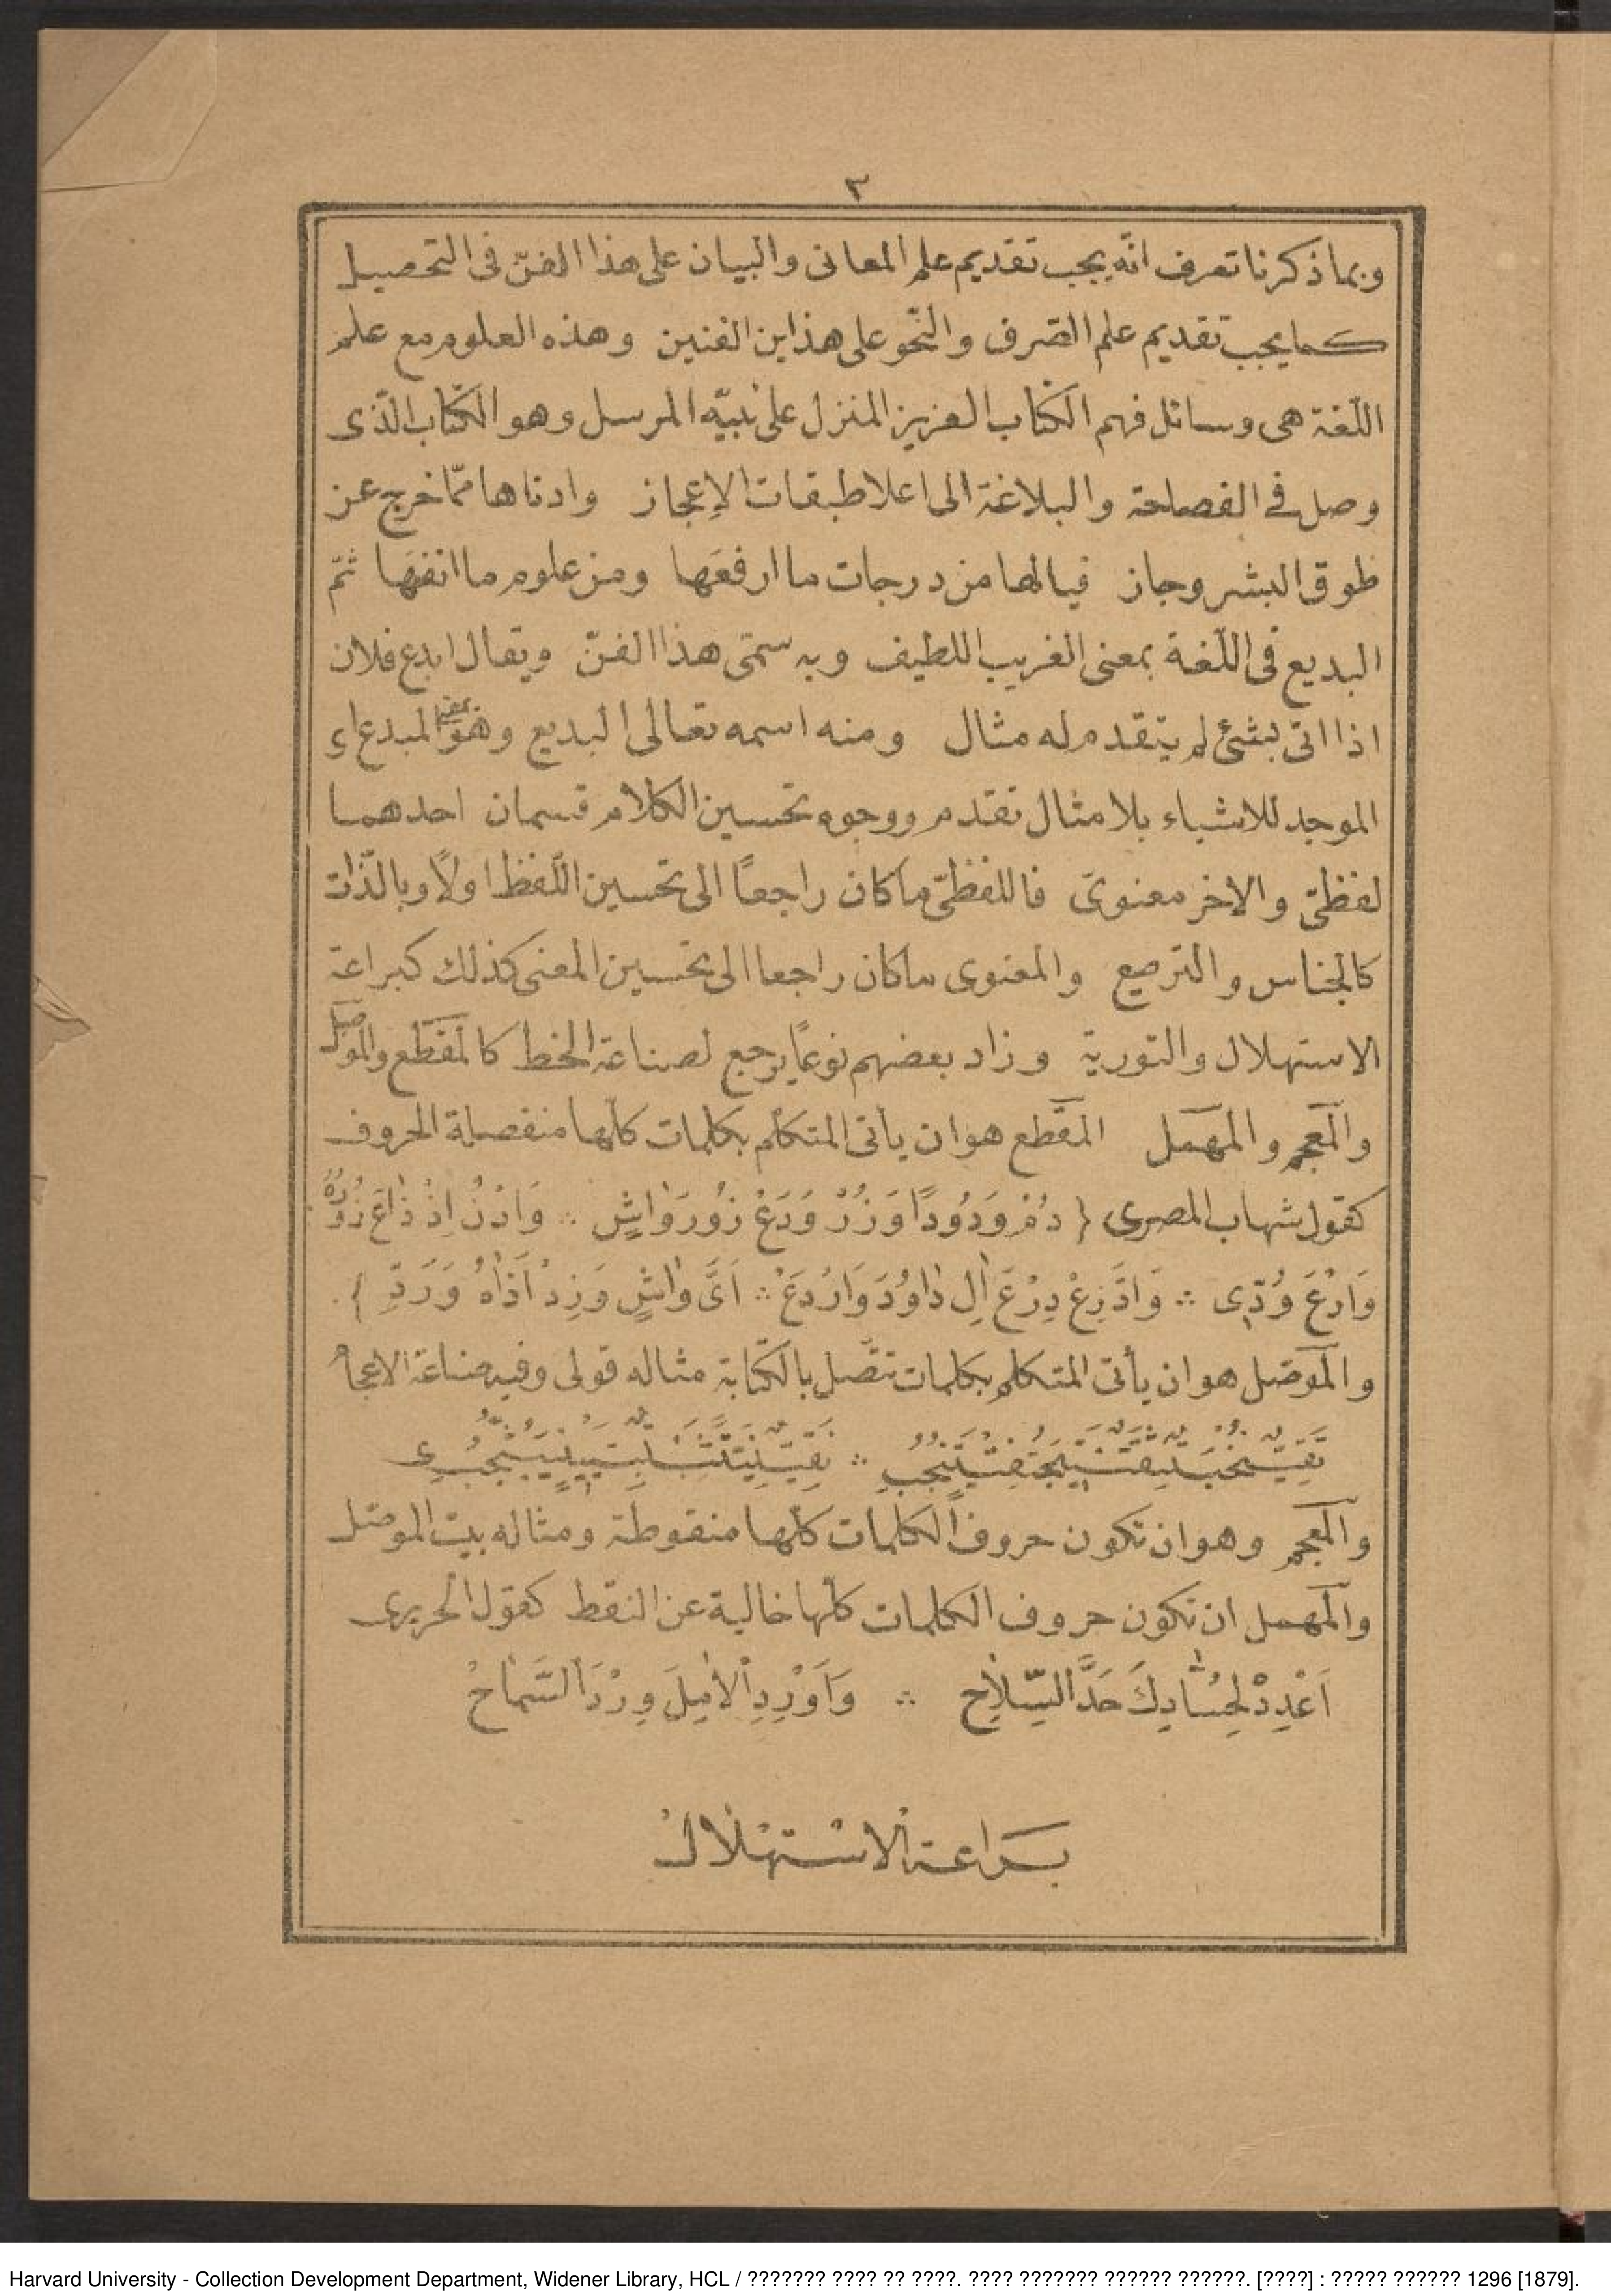 ٣
وبما ذكرنا تعرف انّه يجب تقديم علم المعانى والبيان على هذا الفنّ فى التحصيل
كما يجب تقديم علم الصّرف والنّحو على هذاين الفنين وهذه العلوم مع علم
اللّغة هى وسائل فهم الكتاب العزيز المنزل على نبيّه المرسل وهو الكتاب الّذى
وصل فى الفصاحة والبلاغة الى اعلا طبقات الإعجاز وادناها ممّا خرج عن
طوق البشر وجاز فيا لها من درجات ما ارفعَها ومن علوم ما انفعَها ثمّ
البديع فى اللّغة بمعنى الغريب اللطيف وبه سمّى هذا الفنّ ويقال ابدع فلان
اذا اتى بشئ لم يتقدم له مثال ومنه اسمه تعالى البديع وهو بمعنى المبدع اى
الموجد للاشياء بلا مثال تقدم ووجوه تحسين الكلام قسمان احدهما
لفظىّ والاخر معنوىّ فاللفظىّ ما كان راجعًا الى تحسين اللّفظ اولًا وبالذّات
كالجناس والترصيع والمعنوى ما كان راجعا الى تحسين المعنى كذلك كبراعة
الاستهلال والتورية وزاد بعضهم نوعًا يرجع لصناعة الخط كالمقطّع والموصل
والمعجم والمهمل المقطّع هو ان يأتى المتكلم بكلمات كلّها منفصلة الحروف
كقول شهاب المصرى { دُمْ وَدُودًا وَزُرْ وَدَعْ زُورَ وَاشٍ ∴ وَادْنُ اِذْ ذَاعَ
وَارْعَ وُدّى ∴ وَادَّرِعْ دِرْعَ اٰلِ دَاوُدَ وَارْدَعْ ∴ اَىَّ وَاشٍ وَزِدْ اَذَاهُ وَرَدِّ }
والموصّل هو ان يأتى المتكلم بكلمات تتّصل بالكتابة مثاله قولى وفيه صناعة الاعجام
والمعجم وهو ان تكون حروف الكلمات كلّها منقوطة ومثاله بيت الموصّل
والمهمل ان تكون حروف الكلمات كلّها خالية عن النقط كقول الحريرى
اَعْدِدْ لِحُسَّادِكَ حَدَّ السِّلَاحِ ∴ وَاَوْرِدِ الْاٰمِلَ وِرْدَ السَّمَاحْ
بَرَاعة الاسْتهْلَال